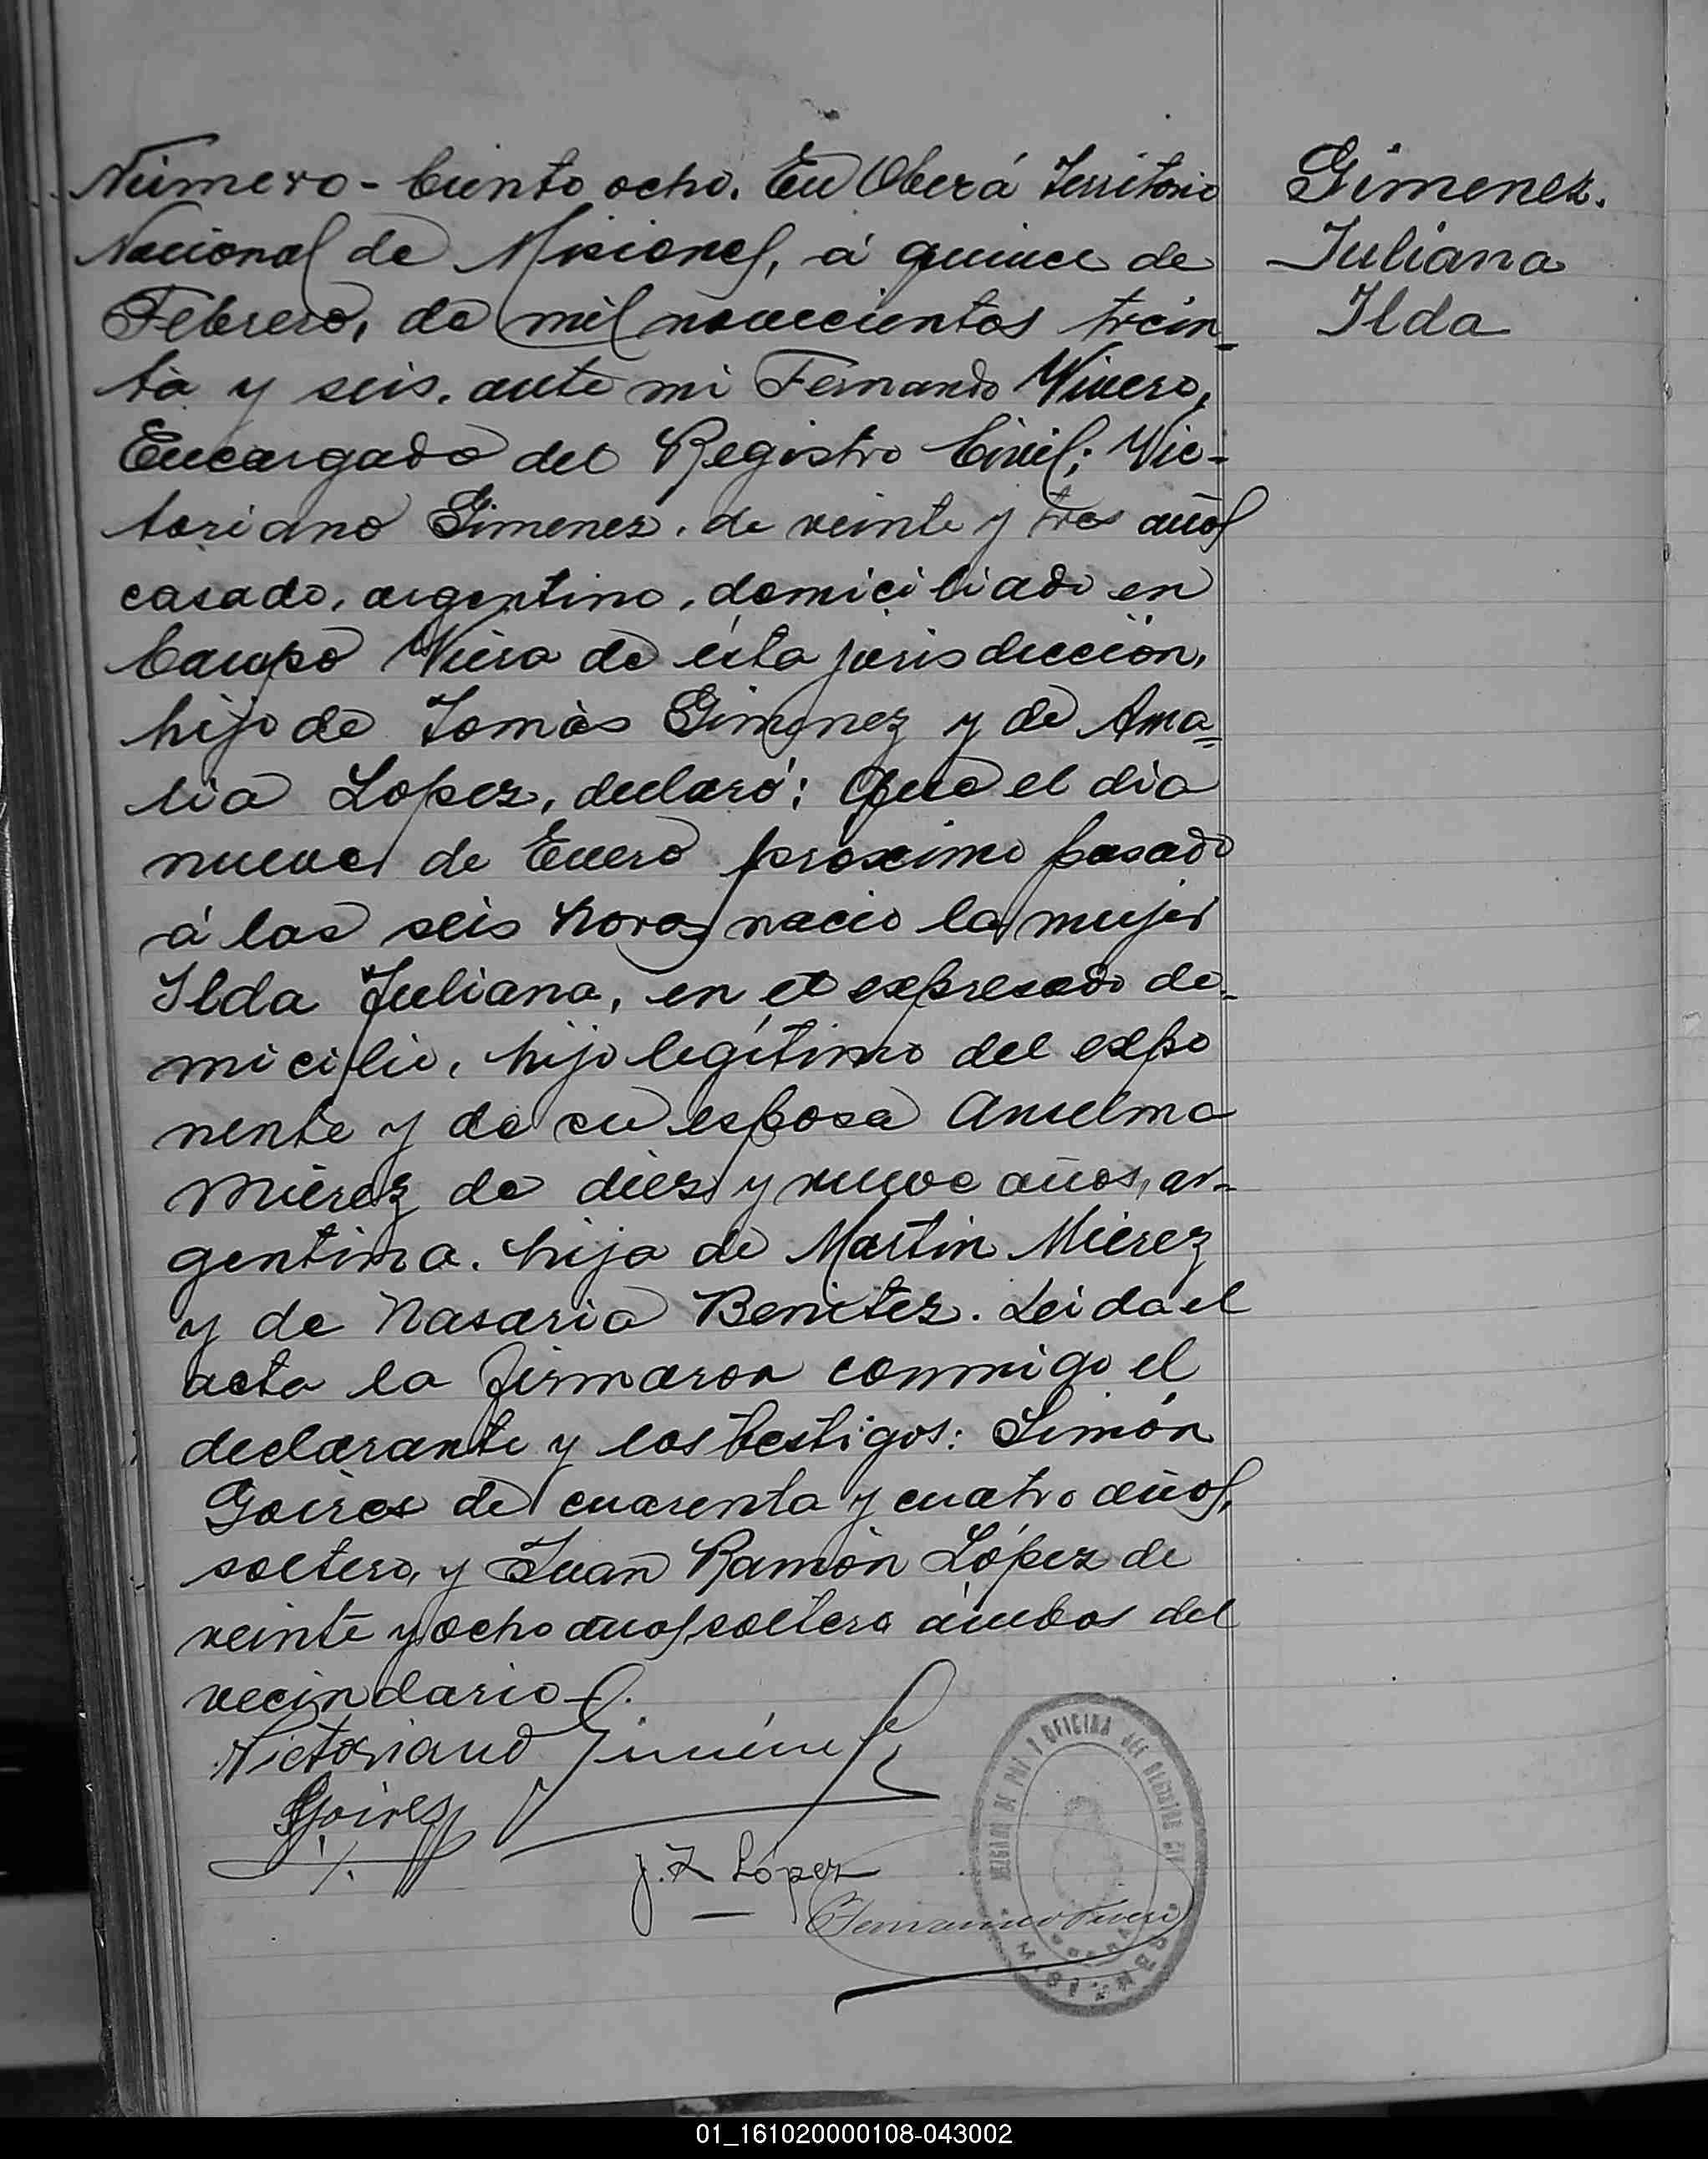 Número - Ciento ocho. En Oberá Territorio
Nacional de Misiones, á quince de
Febrero, de mil novecientos trein_
ta y seis, ante mi Fernando Vivero,
Encargado del Registro Civil; Vic-
toriano Gimenez, de veinte y tres años
casado, argentino, domiciliado en
Campo Viera de ésta jurisdicción,
hijo de Tomás Gimenez y de Ama=
lia Lopez, declaró; Que el dia
nueve de Enero proximo pasado
á las seis horas nacio la mujer
Ilda Juliana, en el expresado do_
micilio, hijo legítimo del expo
nente y de su esposa Anselma
Mierez de diez y nueve años, ar_
gentina. hija de Martin Mierez
y de Nasaria Benitez. Leida el
acta la firmaron conmigo el
declarante y los testigos: Simón
Goires de cuarenta y cuatro años,
soltero, y Juan Ramón López de
veinte y ocho años soltero ámbos del
vecindario.
Gimenez.
Juliana
Ilda
Victoriano Jiménez
Goires
J. R López
JUZGADO DE PAZ Y OFICINA DEL REGISTRO CIVIL
01_161020000108-043002